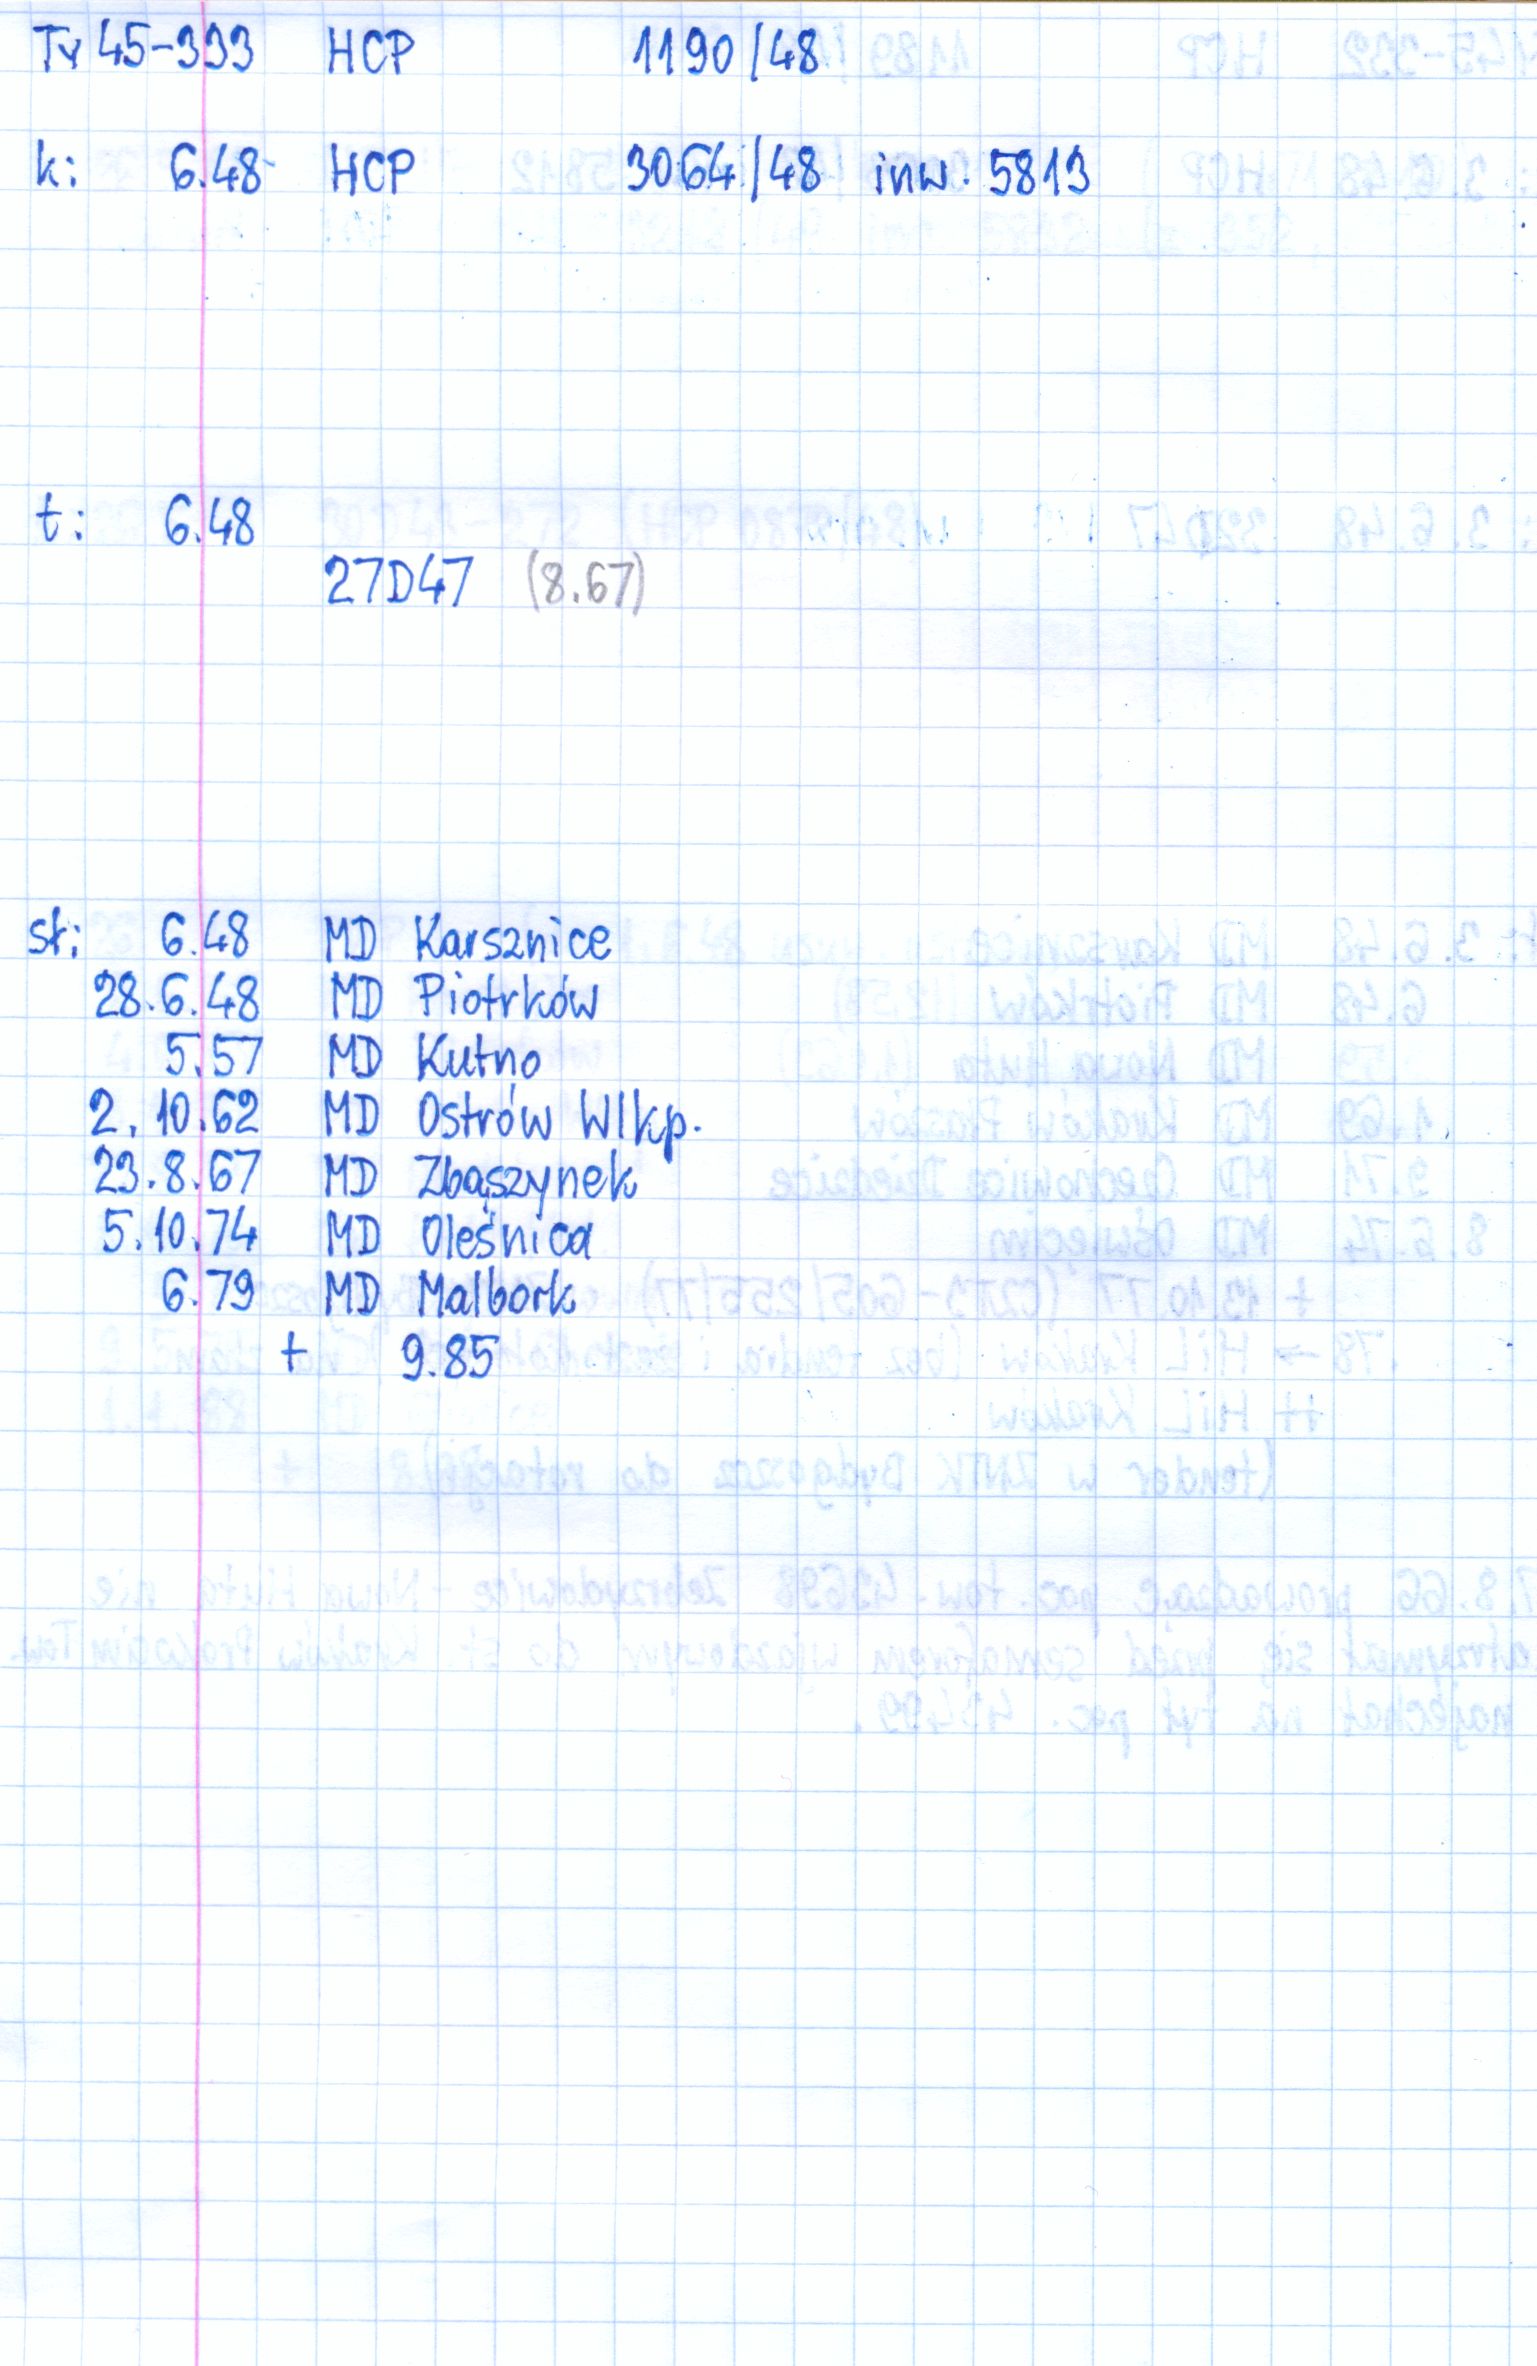 Ty 45-333 HCP 1190/48
k: 6.48 HCP 3064/48 inw. 5813
t: 6.48
27D47 (8.67)
st: 6.48 MD Karsznice
28.6.48 MD Piotrków
5.57 MD Kutno
2.10.62 MD Ostrów Wlkp.
23.8.67 MD Zbąszynek
5.10.74 MD Oleśnica
6.79 MD Malbork
+ 9.85